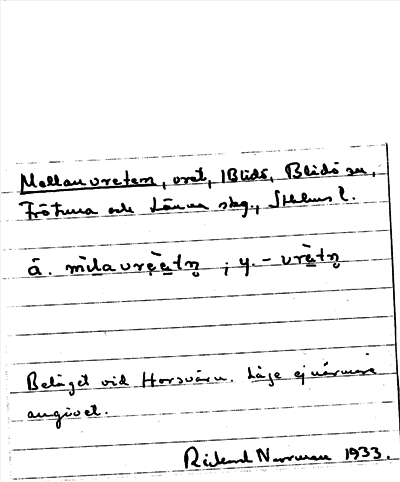 Mellanvreten, vret, 1 Blidö, Blidö sn,
Frötuna och Länna skg., Sthlms l.
ä. mìlavrèatn̥ ; y. - vrètn̥
Beläget vid Horsvären. Läge ej närmare
angivet.
Rickard Norrman 1933.